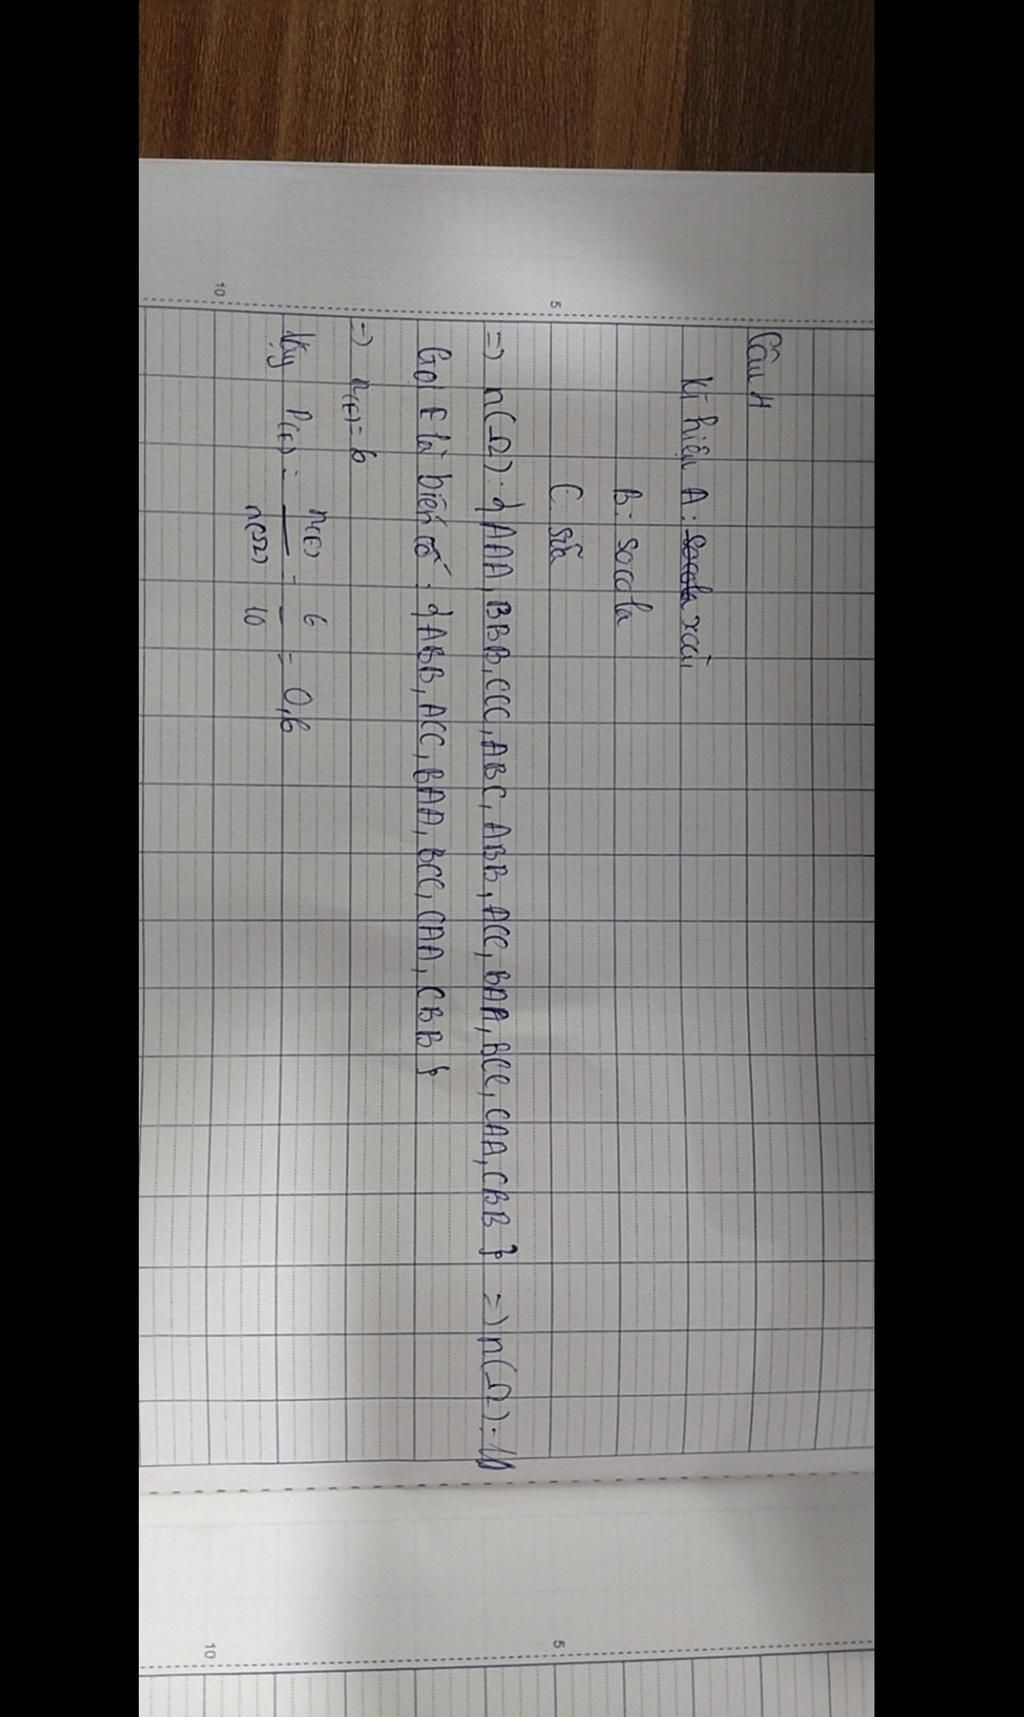 Câu 4
Kí hiệu A: socola xoài
B: socola
C: sữa
=> n(Ω): {AAA, BBB, CCC, ABC, ABB, ACC, BAA, BCC, CAA, CBB} => n(Ω) = 10
Gọi E là biến cố: {ABB, ACC, BAA, BCC, CAA, CBB}
=> n(E) = 6
Vậy P(E) = n(E)/n(Ω) = 6/10 = 0,6
5
10
5
10